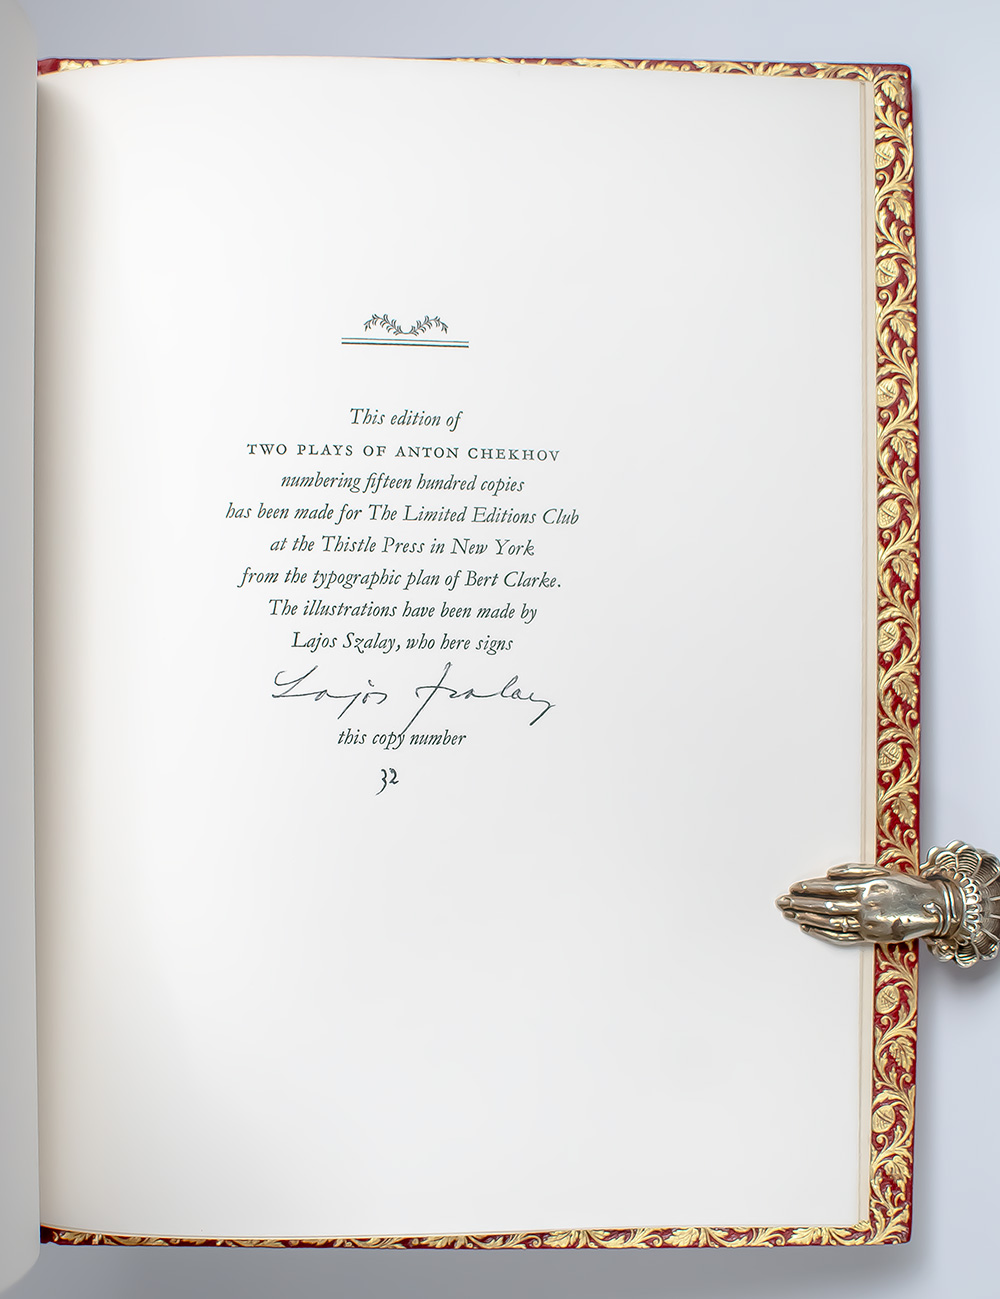 This edition of
TWO PLAYS OF ANTON CHEKHOV
numbering fifteen hundred copies
has been made for The Limited Editions Club
at the Thistle Press in New York
from the typographic plan of Bert Clarke.
The illustrations have been made by
Lajos Szalay, who here signs
Lajos Szalay
this copy number
32